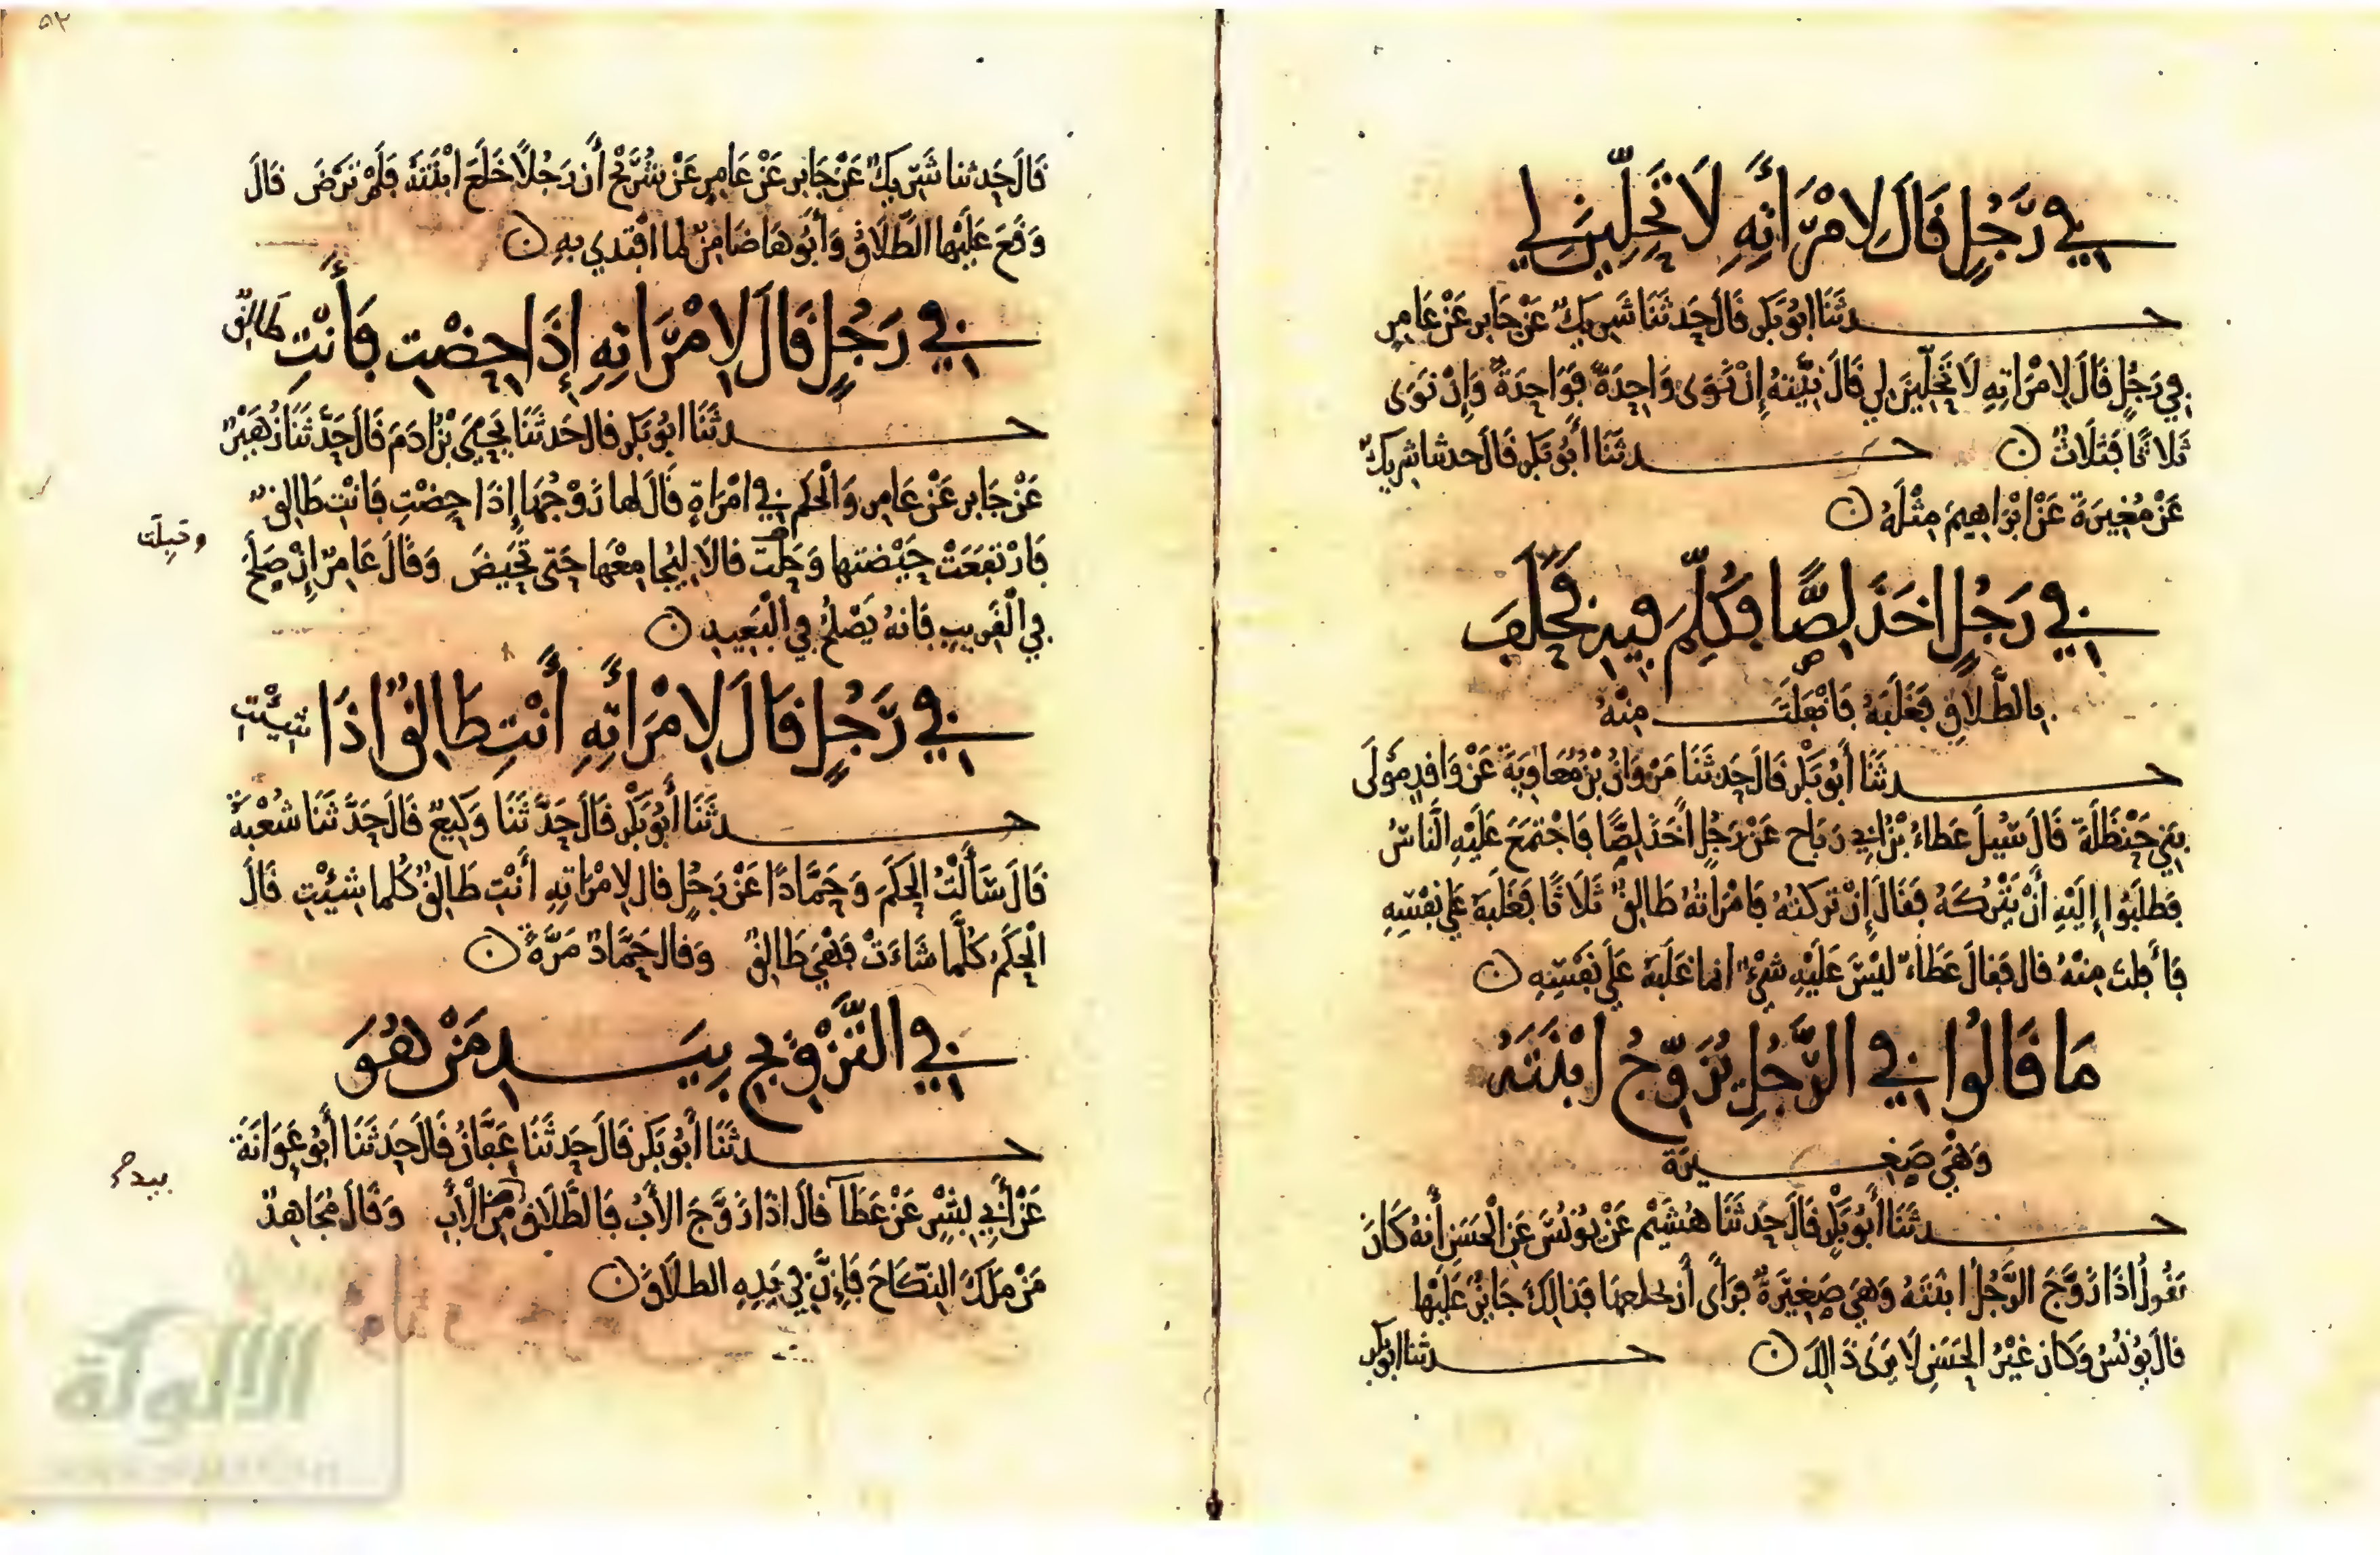 في رَّجُلٍ قَالَ لامْرَأَتِهِ لَا تَحِلِّينَ لِي
حدثَنَا ابُو بَكرٍ قَالَ حَدثَنَا شَرِيكٌ عَنْ جَابرٍ عَنْ عَامِرٍ
في رَجُلٍ قَالَ لامْرَاتِهِ لَا تَحِلِّينَ لِي قَالَ نِيَّتهُ إِنْ نَوَى وَاحِدَةً فَوَاحِدَةٌ وَإِنْ نَوَى
ثَلاثًا فَثَلَاثٌ ن حدثَنَا أَبُو بَكرٍ قَالَ حدثنا شرِيكٌ
عَنْ مُغِيرَة عَنْ ابْرَاهِيمَ مِثْلَهُ ن
في رَجُلٍ اخَذَ لِصًّا فكُلِّمَ فِيهِ فَحَلَفَ
بالطَّلاقِ فَغَلَبَهُ فَانْفَلَتَ مِنْهُ
حدثَنَا أَبُو بَكْرٍ قَالَ حَدثَنَا مَرْوَانُ بْنُ مُعَاوِيَةَ عَنْ وَاقدٍ مَوْلَى
بَنِي حَنْظَلَةَ قَالَ سُئِلَ عَطَاءُ بْنُ أَبِي رَبَاح عَنْ رَجُلٍ أَخَذَ لِصًّا فَاجْتَمَعَ عَلَيْهِ النَّاسُ
فطَلَبُوا إِلَيْهِ أَنْ يَتْرُكَهُ فَقَالَ إِنْ تركتهُ فَامْرَأَتهُ طَالِقٌ ثَلَاثًا فَغَلَبَهُ عَلَى نفْسِهِ
فَأَفلتَ مِنْهُ قال فَقالَ عَطَاءٌ لَيْسَ عَلَيْهِ شَيْءٌ انما غَلَبَهُ عَلَى نَفْسِهِ ن
مَا قَالُوا في الرَّجُلِ يُزَوِّجُ ابْنَتَهُ
وَهْيَ صَغِيرَة
حدثَنَا أَبُو بَكْرٍ قَالَ حَدثَنَا هُشَيْم عَنْ يُونُسَ عَنِ الْحَسَنِ أَنهُ كَانَ
يَقُولُ اذَا زَوَّجَ الرَّجُلُ ابْنَتَهُ وَهْيَ صَغِيرَةٌ فرَأَى أَنْ يخلعهَا فذالِكَ جَائِزٌ عَلَيْهَا
قالَ يُونُسُ وَكَان غَيْرُ الحَسَنِ لَا يَرَى ذَالِكَ ن حدثنا ابو بكر
٥٢
قَالَ حَدثنا شَرِيكٌ عَنْ جَابرٍ عَنْ عَامِرٍ عَنْ شُرَيْحٍ أَن رَجُلًا خَلَعَ ابْنَتَهُ فَلَمْ تَرْضَ قالَ
وَقعَ عَلَيْهَا الطَّلَاقُ وَأَبُوهَا ضَامِنٌ لما افْتدي بهِ ن
في رَجُلٍ قَالَ لامْرَاتِهِ إِذَا حِضْتِ فَأَنْتِ طَالِقٌ
حدثَنَا ابُو بَكرٍ قال حَدثَنَا يَحْيَى بْنُ ادَمَ قَالَ حَدَّثَنَا زُهَيْرٌ
عَنْ جَابرٍ عَنْ عَامِرٍ وَالْحَكَمِ في امْرَاةٍ قَالَ لها زَوْجُهَا إِذَا حِضْتِ فَانْتِ طَالِقٌ
فَارْتفَعَتْ حَيْضتهَا وَحَبلَتْ قالا لَا يُجامِعْهَا حَتى تَحِيضَ وَقالَ عَامرٌ إِنْ صَلحَ
وحَبِلَت
في الْقَرِيبِ فَانهُ يَصْلحُ في الْبَعِيدِ ن
في رَّجُلٍ قَالَ لامْرَأَتِهِ أَنْتِ طَالِقٌ اذَا شِئْتِ
حدثَنَا أَبُو بَكْرٍ قَالَ حَدَّثَنَا وَكِيعٌ قَالَ حَدَّثَنَا شُعْبَةُ
قَالَ سَأَلْتُ الحَكَمَ وَحَمَّادًا عَنْ رَجُلٍ قال لامْرَاتِهِ أَنْتِ طَالِقٌ كُلما شِئْتِ قَالَ
الْحَكَمُ كُلَّمَا شَاءَتْ فَهْيَ طَالِقٌ وَقال حَمَّادٌ مَرَّةً ن
في التَّزْوِيجِ بِيَدِ مَنْ هُوَ
حدثَنَا أَبُو بَكرٍ قَالَ حَدثَنَا عَفَّانُ قَالَ حَدثَنَا أَبُو عَوَانَةَ
بيد
عَنْ أَبِي بِشْرٍ عَنْ عَطَآءٍ قالَ اذَا زَوَّجَ الأَبُ فَالطَّلَاقُ مِنَ الْأَبِ وَقَالَ مُجَاهِدٌ
مَنْ مَلَكَ النِّكَاحَ فَإِنَّ في يَدِهِ الطلاقَ ن
الألوكة